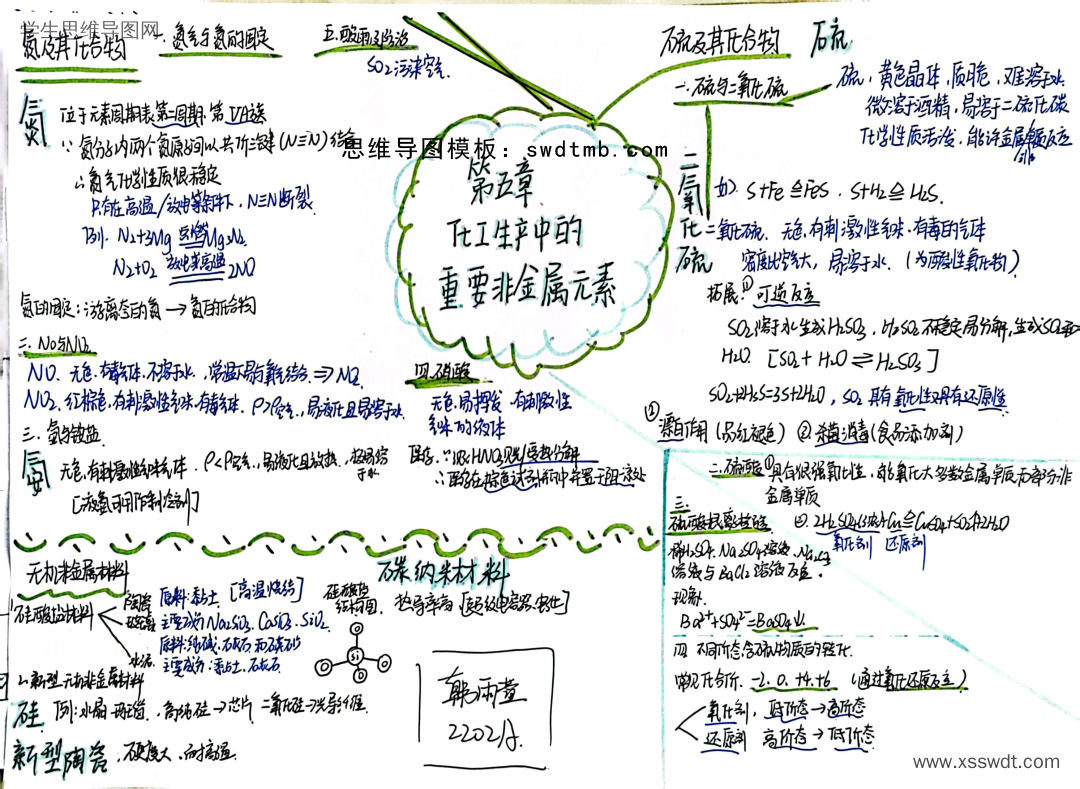 学生思维导图网
氮及其化合物
一.氮气与氮的固定
五.酸雨及防治
SO2污染空气
硫及其化合物
硫
一.硫与二氧化硫
硫,黄色晶体,质脆,难溶于水
微溶于酒精,易溶于二硫化碳
化学性质活泼,能许金属单质反应
思维导图模板:swdtmb.com
第五章
化工生产中的
重要非金属元素
氮
位于元素周期表第二周期,第VA族
∵氮分子内两个氮原子间以共价三键(N≡N)结合
∴氮气化学性质很稳定
只有在高温/放电等条件下,N≡N断裂
例. N2+3Mg 点燃 Mg3N2
N2+O2 放电或高温 2NO
氮的固定:游离态的氮→氮的化合物
二.NO与NO2
NO.无色.有毒气体.不溶于水,常温下易与氧结合⇒NO2
NO2.红棕色,有刺激性气味.有毒气体.ρ>ρ空气,易液化且易溶于水
三.氨与铵盐
氨
无色,有刺激性气味气体.ρ<ρ空气,易液化且放热,极易溶于水
[液氨可用作制冷剂]
四.硝酸
无色,易挥发.有刺激性
气味的液体
∵浓HNO3见光/受热分解
∴贮存在棕色试剂瓶中并置于阴凉处
二氧化硫
如) S+Fe≜FeS.S+H2≜H2S.
二氧化硫.无色,有刺激性气味.有毒的气体
密度比空气大,易溶于水.(为酸性氧化物)
拓展:①可逆反应
SO2溶于水生成H2SO3,H2SO3不稳定易分解,生成SO2和
H2O. [SO2+H2O⇌H2SO3]
SO2+2H2S=3S+2H2O,SO2具有氧化性又具有还原性
②漂白作用(品红褪色) ③杀菌消毒(食品添加剂)
二.硫酸①具有很强氧化性.能氧化大多数金属单质和部分非
金属单质
②.2H2SO4(浓)+Cu≜CuSO4+SO2↑+2H2O
氧化剂 还原剂
三.
硫酸根离子检验
稀H2SO4.Na2SO4溶液.Na2CO3
溶液与BaCl2溶液反应.
现象.
Ba2++SO42-=BaSO4↓.
四.不同价态含硫物质的转化.
常见化合价.-2.0.+4.+6.(通过氧化还原反应)
氧化剂,低价态→高价态
还原剂 高价态→低价态
无机非金属材料
1.硅酸盐材料
陶瓷
原料:黏土.[高温烧结]
玻璃
主要成分Na2SiO3.CaSiO3.SiO2.
原料:纯碱.石灰石和石英砂
水泥
主要成分:黏土.石灰石
硅酸盐
结构图.
Si
O
O
O
O
碳纳米材料
热导率高[超级电容器.]
2.新型无机非金属材料
硅
例:水晶.玛瑙.高纯硅→芯片 二氧化硅→光导纤维
新型陶瓷.硬度大,耐高温.
韩雨萱
2202班.
www.xsswdt.com